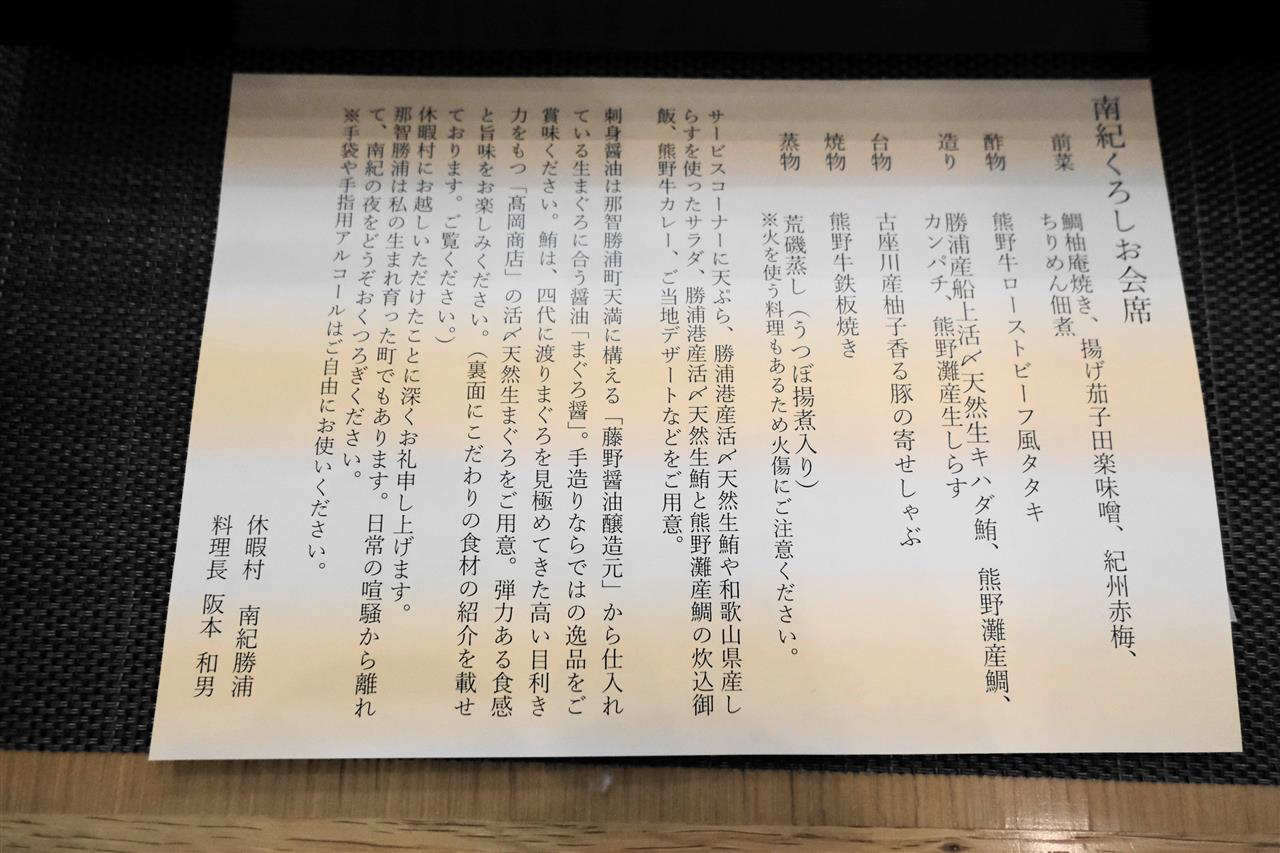 南紀くろしお会席
前菜 鯛柚庵焼き、揚げ茄子田楽味噌、紀州赤梅、
ちりめん佃煮
酢物 熊野牛ローストビーフ風タタキ
造り 勝浦産船上活〆天然生キハダ鮪、熊野灘産鯛、
カンパチ、熊野灘産生しらす
台物 古座川産柚子香る豚の寄せしゃぶ
焼物 熊野牛鉄板焼き
蒸物 荒磯蒸し（うつぼ揚煮入り）
※火を使う料理もあるため火傷にご注意ください。
サービスコーナーに天ぷら、勝浦港産活〆天然生鮪や和歌山県産し
らすを使ったサラダ、勝浦港産活〆天然生鮪と熊野灘産鯛の炊込御
飯、熊野牛カレー、ご当地デザートなどをご用意。
刺身醤油は那智勝浦町天満に構える「藤野醤油醸造元」から仕入れ
ている生まぐろに合う醤油「まぐろ醤」。手造りならではの逸品をご
賞味ください。鮪は、四代に渡りまぐろを見極めてきた高い目利き
力をもつ「髙岡商店」の活〆天然生まぐろをご用意。弾力ある食感
と旨味をお楽しみください。（裏面にこだわりの食材の紹介を載せ
ております。ご覧ください。）
休暇村にお越しいただけたことに深くお礼申し上げます。
那智勝浦は私の生まれ育った町でもあります。日常の喧騒から離れ
て、南紀の夜をどうぞおくつろぎください。
※手袋や手指用アルコールはご自由にお使いください。
休暇村 南紀勝浦
料理長 阪本 和男